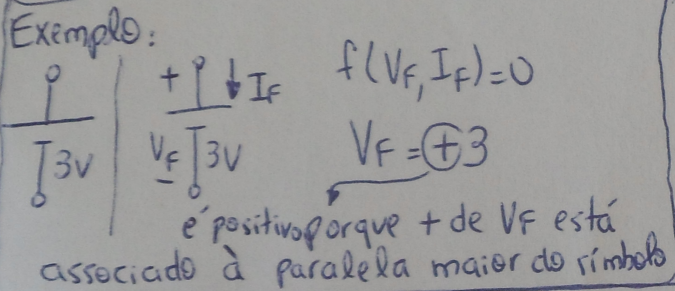 Exemplo:
3V
+ IF
VF 3V
-
f(VF, IF)=0
VF = +3
é positivo porque + de VF está
associado à paralela maior do símbolo